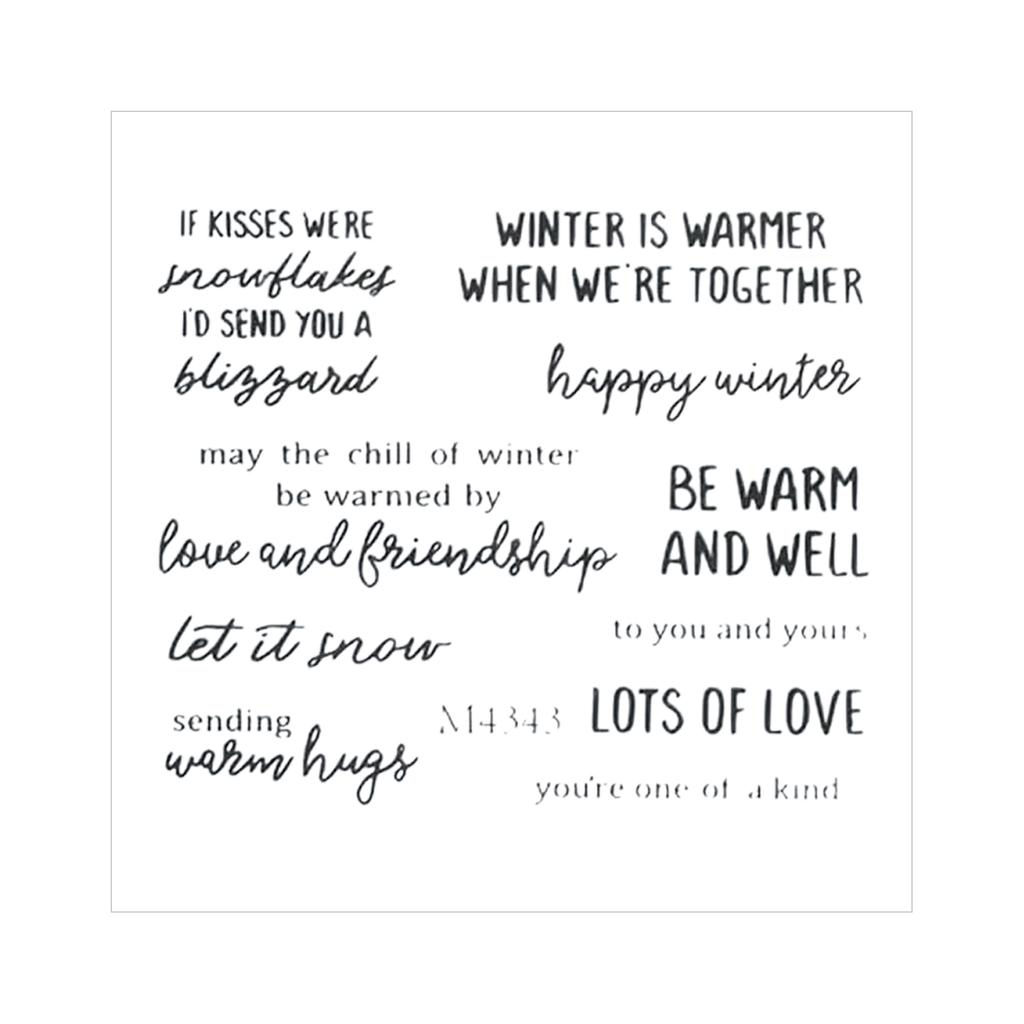 IF KISSES WERE
snowflakes
I'D SEND YOU A
blizzard
WINTER IS WARMER
WHEN WE'RE TOGETHER
happy winter
may the chill of winter
be warmed by
love and friendship
BE WARM
AND WELL
to you and yours
let it snow
sending
warm hugs
M4343
LOTS OF LOVE
you're one of a kind